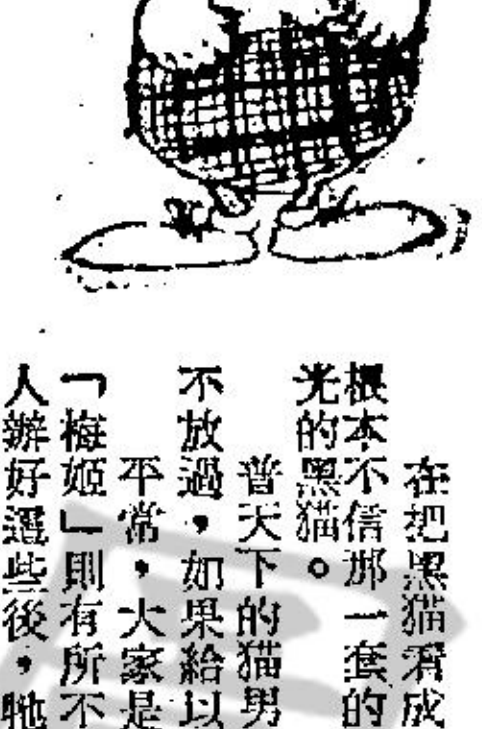 在把黑猫看成
根本不信那一套的
光的黑猫。
普天下的猫男
不放過，如果給以
平常，大家是
「梅姬」則有所不
人辦好這些後，牠